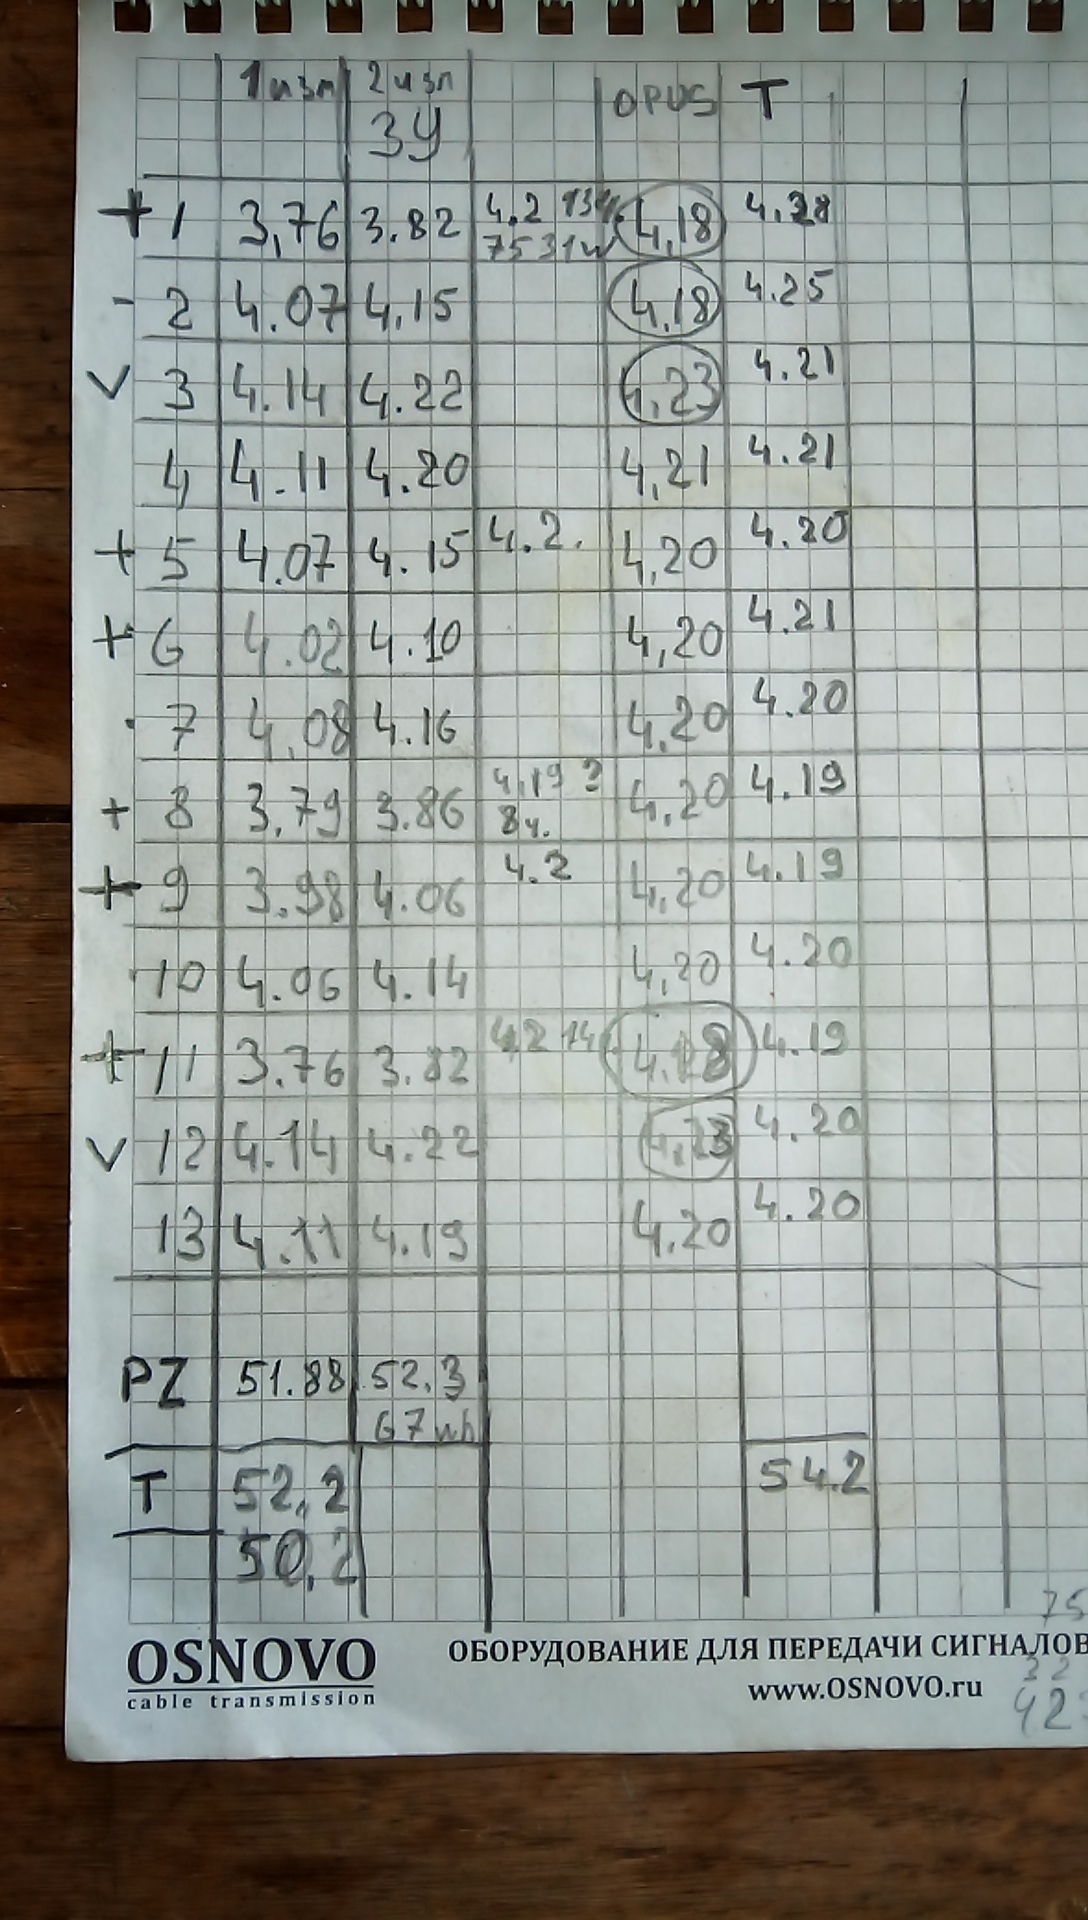 1 изм 2 изм OPUS T
ЗУ
+ 1 3,76 3.82 4.2 13ч. 4,18 4.28
75 31
- 2 4.07 4,15 4,18 4.25
V 3 4.14 4.22 4,23 4.21
4 4.11 4.20 4,21 4.21
+ 5 4.07 4.15 4.2. 4,20 4.20
+ 6 4.02 4.10 4,20 4.21
. 7 4,08 4.16 4,20 4.20
+ 8 3,79 3.86 4,19 ? 4,20 4.19
8ч.
+ 9 3.98 4.06 4.2 4,20 4.19
. 10 4.06 4.14 4,20 4.20
+ 11 3.76 3.82 4,2 14 4.18 4.19
V 12 4.14 4.22 4,23 4.20
13 4.11 4.19 4.20 4.20
PZ 51.88 52.3
67
T 52,2 54.2
50,2
75
32
42
OSNOVO
cable transmission
ОБОРУДОВАНИЕ ДЛЯ ПЕРЕДАЧИ СИГНАЛОВ
www.OSNOVO.ru